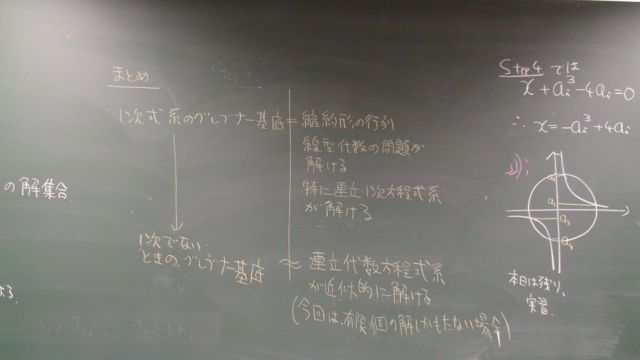 まとめ
1次式系のグレブナー基底 = 簡約形の行列
線型代数の問題が
解ける
特に連立1次方程式系
が解ける
1次でない
ときの、グレブナー基底 ~ 連立代数方程式系
が近似的に解ける
(今回は、有限個の解しかもたない場合)
の解集合
Step4 では
x + aᵢ³ - 4aᵢ = 0
∴ x = -aᵢ³ + 4aᵢ
本日は残り、
実習.